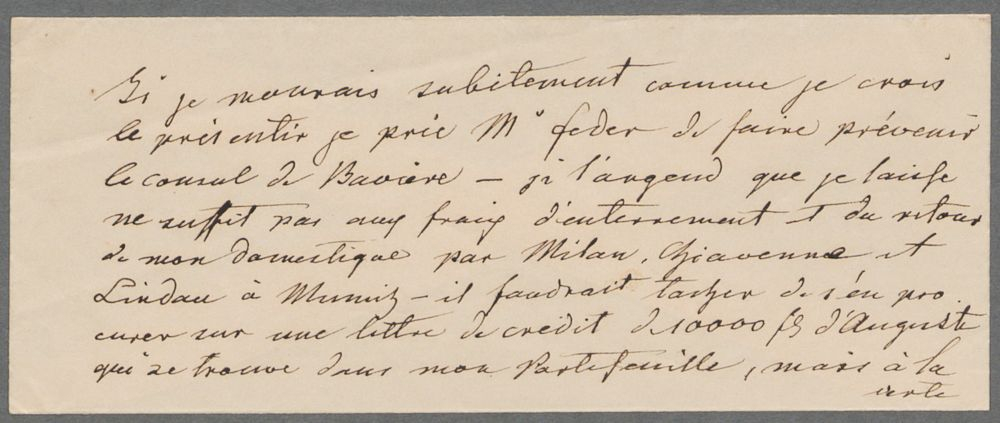 Si je mourais subitement comme je crois
le présentir je prie Mr feder de faire prévenir
le consul de Bavière – si l'argend que je laisse
ne suffit pas aux fraix d'enterrement et du retour
de mon domestique par Milan, Chiavenne et
Lindau à Munich – il faudrait tacher de s'en pro
curer sur une lettre de crédit de 10000 fs d'Auguste
qui se trouve dans mon Portefeuille, mais à la